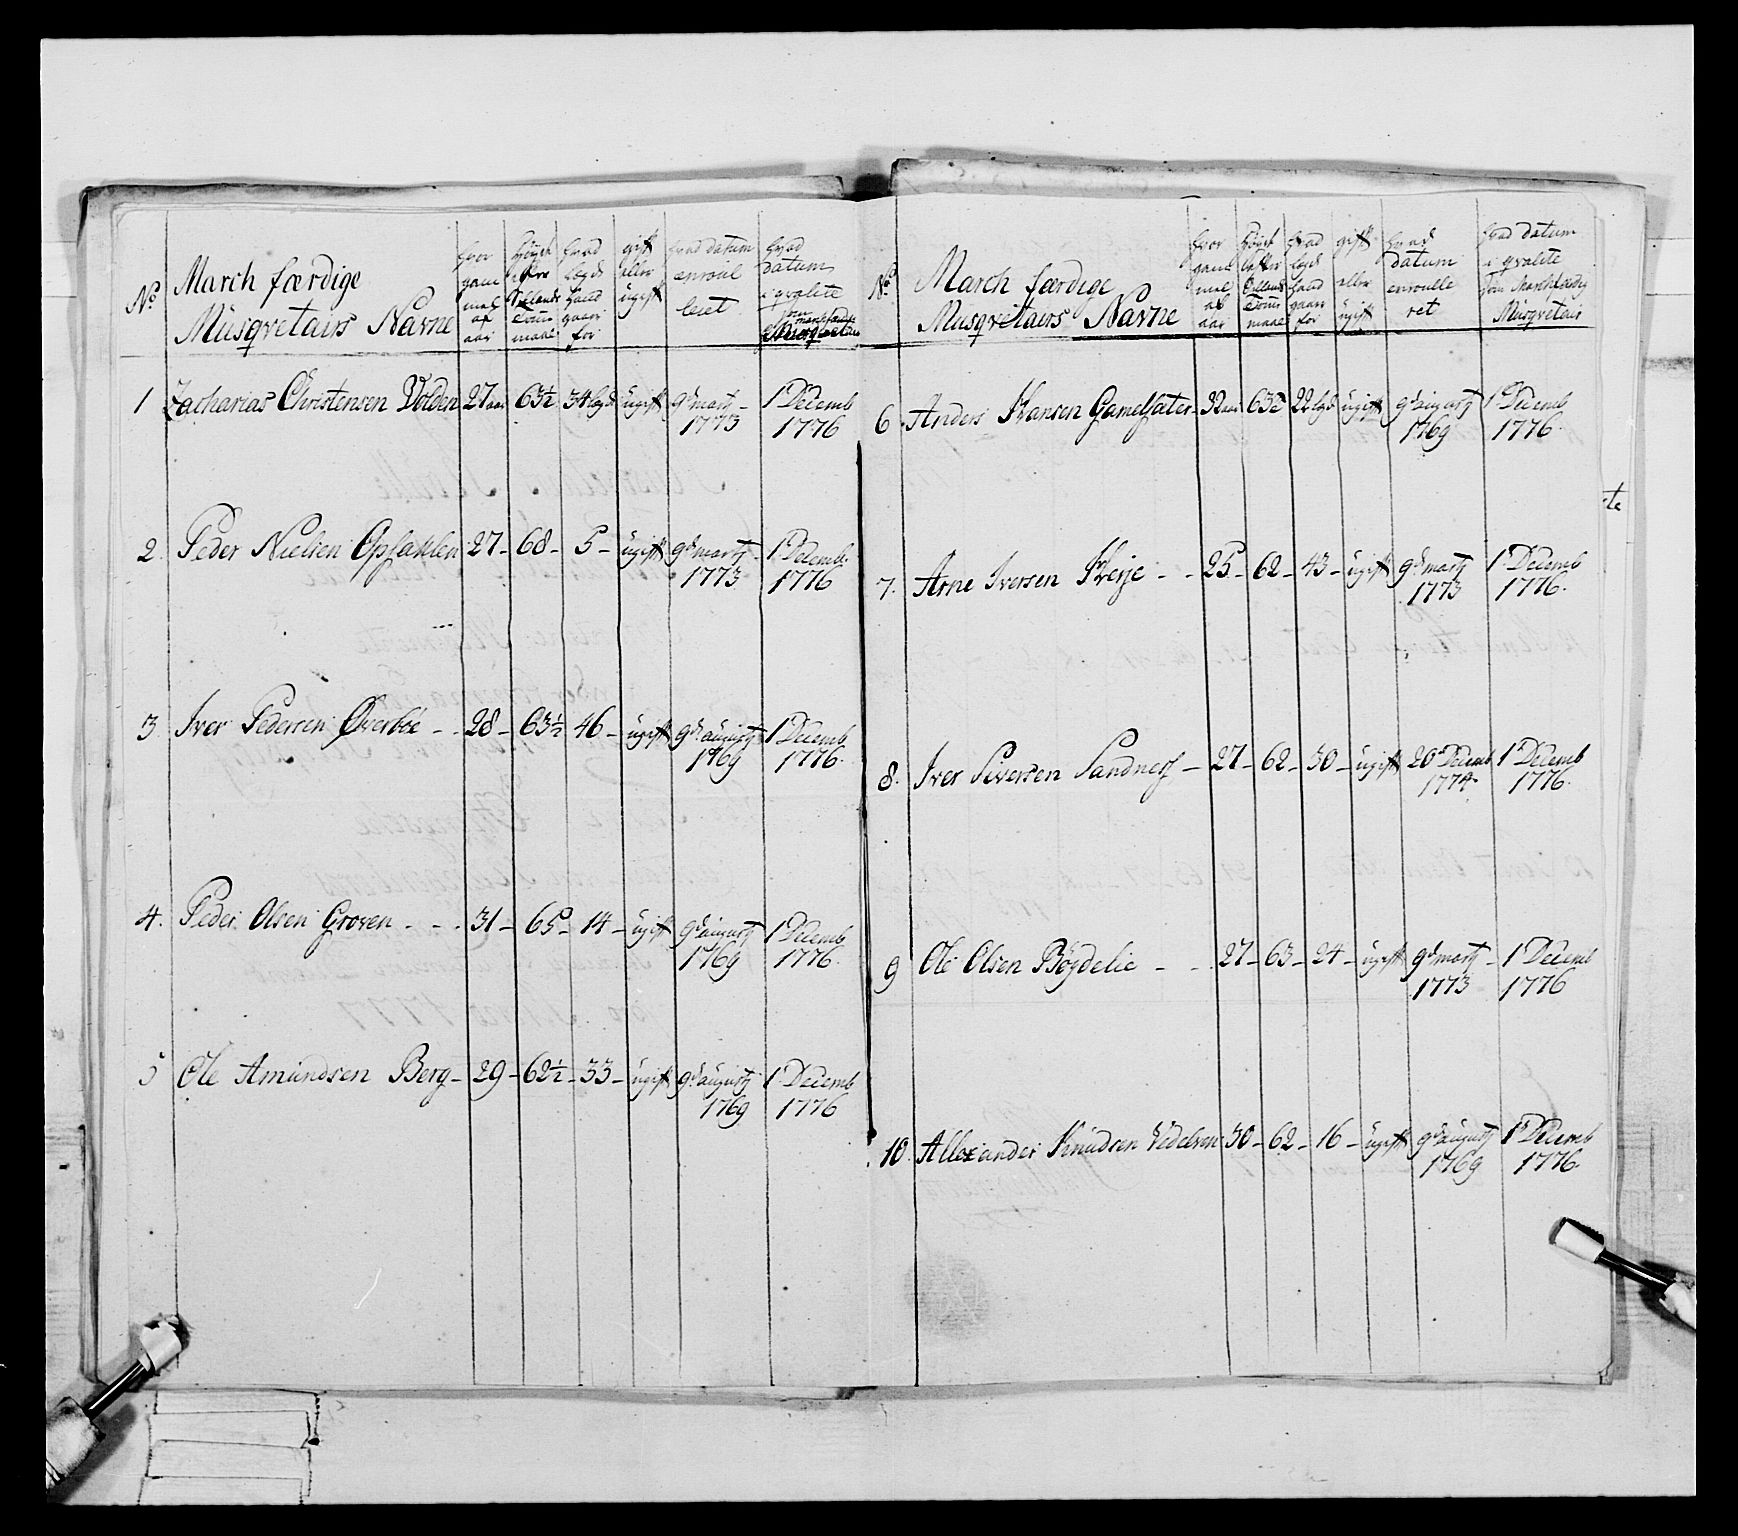 No March færdige Musqvetairs Navne
hvor gam mel af aar
Høyde efter Sellands Tomme maal
hvad legd hand gaar for
gift eller ugift
hvad datum enroul leret
hvad datum i qvalite
1 Zacharias Christensen Volden 27 aar 63½ 34 legd ugift 9d marty 1773 1d Decemb 1776
2. Peder Nielsen Opsahlen 27 – 68 – 5 – ugift 9d marty 1773 1d Decemb 1776
3 Iver Pedersen Øverbøe – 28 – 63½ 46 – ugift 9d augusty 1769 1 Decemb 1776.
4. Peder Olsen Groven – 31 – 65 – 14 – ugift 9d augusty 1769 1 Decemb 1776.
5 Ole Amundsen Berg – 29 – 62½ – 33 – ugift 9d augusty 1769 1 Decemb 1776
No March færdige Musqvetairs Navne
hvor gam mel af aar
høyde efter Sellands Tomme maal
hvad legd hand gaar for
gift eller ugift
hvad datum enroulle ret
hvad datum i qvalite som Marchfærdig Musqvetair
6 Anders Hansen Gamelsæter 32 aar 63½ 22 legd ugift 9d augusty 1769 1d Decemb 1776.
7. Arne Iversen – 25 – 62 – 43 – ugift 9d marty 1773 1d Decemb 1776.
8. Iver Siversen Sandnes – 27 – 62 – 30 – ugift 20d Decemb 1774. 1d Decemb 1776.
9 Ole Olsen Bøgdelie – 27 – 63 – 24 – ugift 9d marty 1773 1 Decemb 1776
10. Allexander Knudsen 30 – 62 – 16 – ugift 9d augusty 1769 1d Decemb 1776.
te